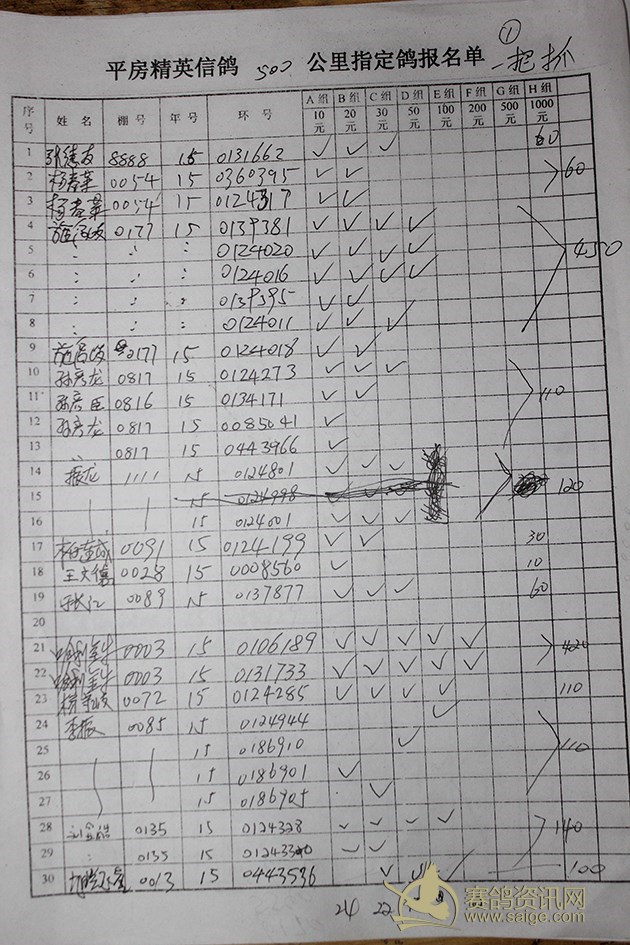 ①
平房精英信鸽 500 公里指定鸽报名单 一把抓
序号 姓名 棚号 年号 环号 A组10元 B组20元 C组30元 D组50元 E组100元 F组200元 G组500元 H组1000元
1 8888 15 0131662 ✓ ✓ ✓ 60
2 杨春 0054 15 0360395 ✓ ✓ 60
3 杨春 0054 15 0124317 ✓ ✓
4 0177 15 0139381 ✓ ✓ ✓ ✓
5 : : : 0124020 ✓ ✓ ✓ ✓ 450
6 : : : 0124016 ✓ ✓ ✓ ✓
7 : : : 0139395 ✓ ✓
8 : : : 0124011 ✓ ✓ ✓
9 0177 15 0124018 ✓ ✓
10 孙彦龙 0817 15 0124273 ✓ ✓
11 孙彦臣 0816 15 0134171 ✓ ✓ 110
12 孙彦龙 0817 15 0085041 ✓
13 0817 15 0443966 ✓
14 振龙 1111 15 0124801 ✓ ✓ ✓
15 15 0124998 120
16 15 0124001 ✓ ✓ ✓
17 0091 15 0124199 ✓ ✓ 30
18 王文 0028 15 0008560 ✓ 10
19 0089 15 0137877 ✓ ✓ ✓ 60
20
21 0003 15 0106189 ✓ ✓ ✓ ✓ ✓
22 0003 15 0131733 ✓ ✓ ✓ ✓ ✓ 420
23 0072 15 0124285 ✓ ✓ ✓ ✓ 110
24 李振 0085 15 0124944 ✓
25 15 0186910 ✓ 110
26 15 0186901 ✓
27 15 0186905 ✓
28 0135 15 0124328 ✓ ✓ ✓ ✓ 140
29 : 0135 15 ✓ ✓
30 0013 15 0443536 ✓ ✓ ✓ 100
24 22
赛鸽资讯网
www.saige.com